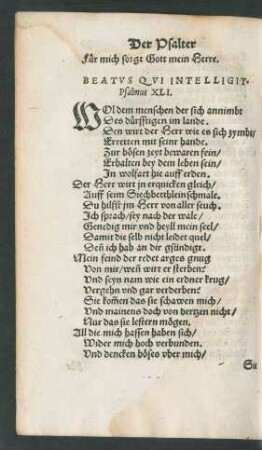 Der Psalter
Für mich sorgt Gott mein Herre.
BEATVS QVI INTELLIGIT.
Psalmus XLI.
WOl dem menschen der sich annimbt
Des dürfftigen im lande.
Den wirt der Herr wie es sich zymbt/
Erretten mit seine hande.
Zur bösen zeyt bewaren sein/
Erhalten bey dem leben sein/
In wolfart hie auff erden.
Der Herr wirt jn erquicken gleich/
Auff seim Siechbettlein schmale.
Du hilfst jm Herr von aller seuch.
Ich sprach/sey nach der wale/
Genedig mir vnd heyll mein seel/
Damit die selb nicht leidet quel/
Deñ ich hab an dir gsündigt.
Mein feind der redet arges gnug
Von mir/weñ wirt er sterben?
Vnd seyn nam wie ein erdner krug/
Vergehn vnd gar verderben?
Sie kom̃en das sie schawen mich/
Vnd mainens doch von hertzen nicht/
Nur das sie lestern mögen.
All die mich hassen haben sich/
Wider mich hoch verbunden.
Vnd dencken böses vber mich/
Sa